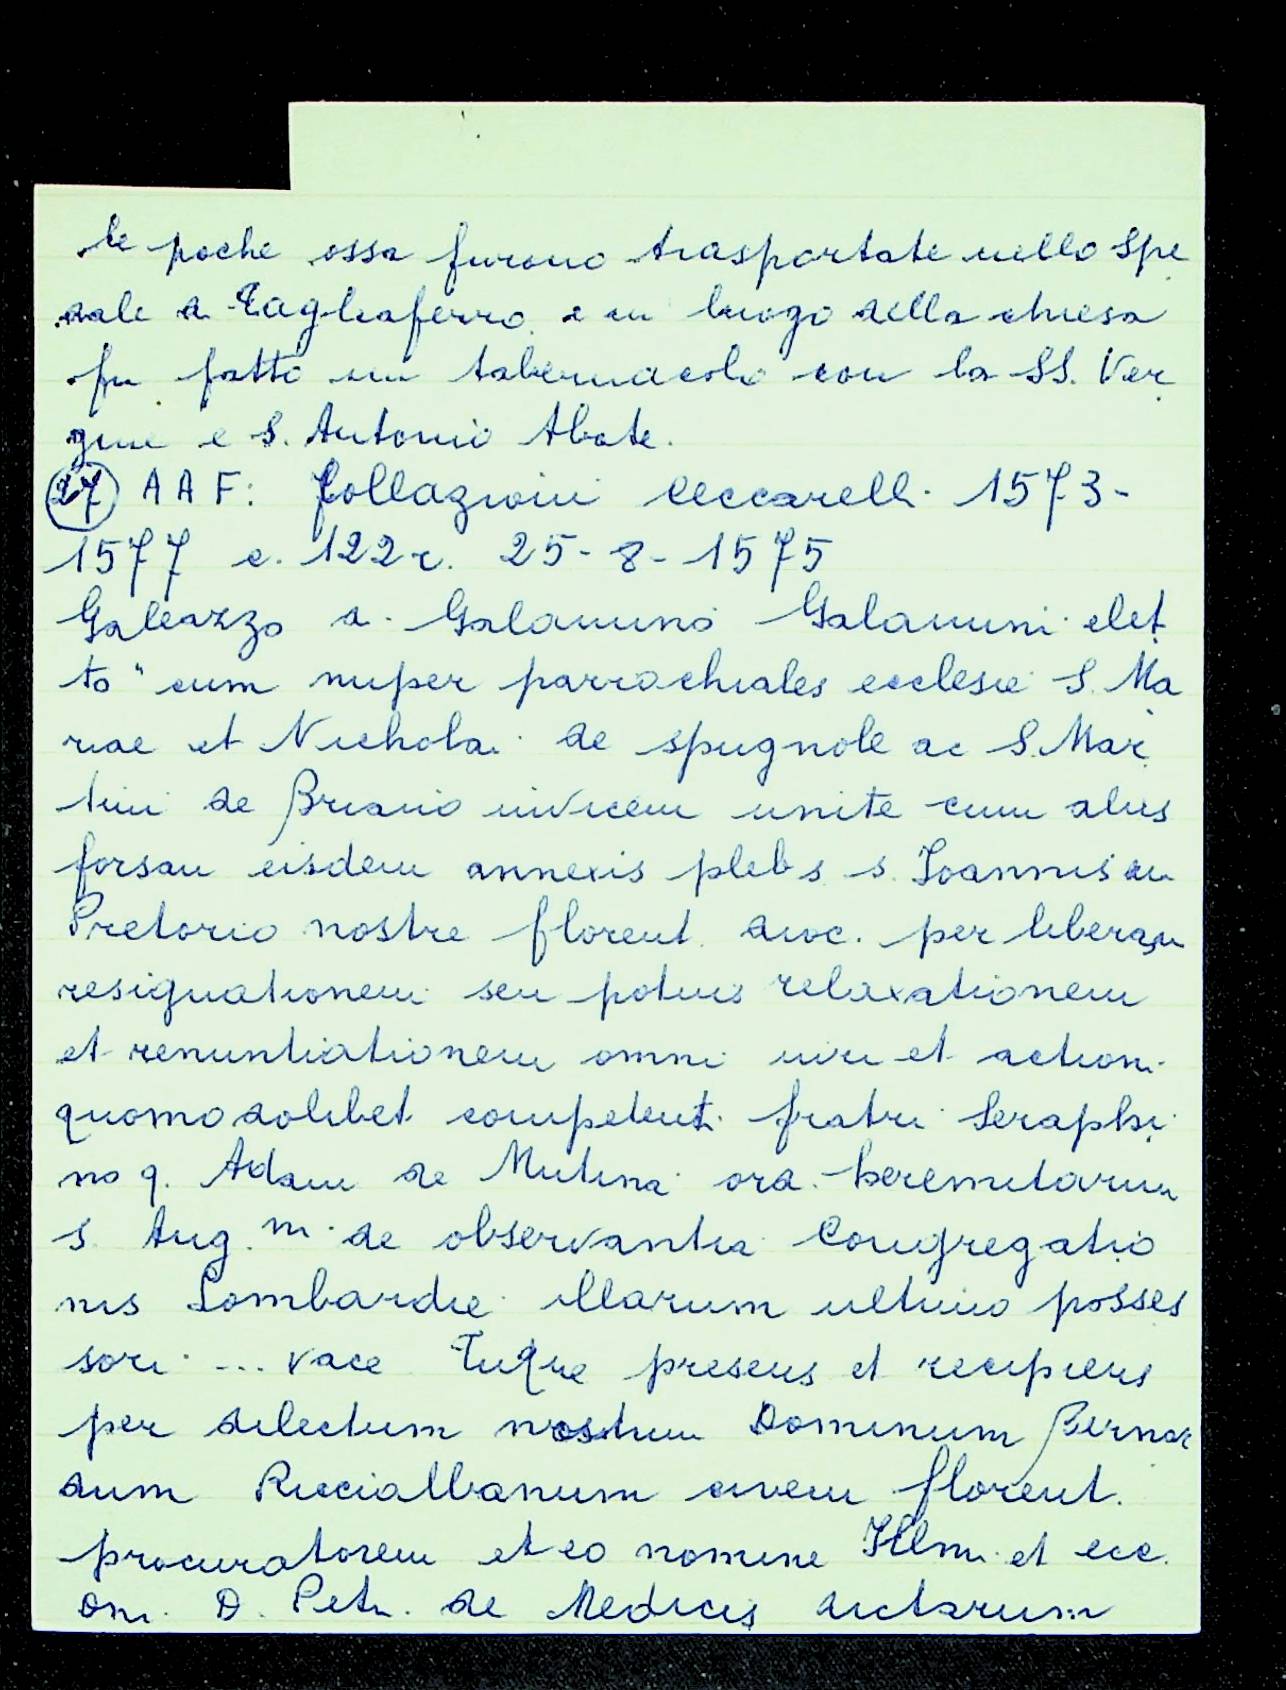 le poche ossa furono trasportate nello Spe
dale di Tagliaferro e in luogo della chiesa
fu fatto un tabernacolo con la SS. Ver
gine e S. Antonio Abate.
(27) AAF: Collazioni Ceccarelli 1573-
1577 c. 122r. 25-8-1575
Galeazzo di Galamino Galamini elet
to "cum nuper parrochiales ecclesie S. Ma
riae et Nicholai de spugnole ac S. Mar
tini de Briano invicem unite cum aliis
forsan eisdem annexis plebs s. Joannis in
Pretorio nostre florent. dioc. per liberam
resignationem seu potius relaxationem
et renuntiationem omni iuri et actioni
quomodolibet competenti fratri Seraphi
no q. Adam de Mutina ord. heremitarum
S. Aug.ni de observantia Congregatio
nis Lombardie illarum ultimo posses
sori ... vace Tuque presens et recipiens
per dilectum nostrum Dominum Bernar
dum Riccialbanum civem florent.
procuratorem et eo nomine Illmi et ecc.
Dni. D. Petri de Medicis dictarum